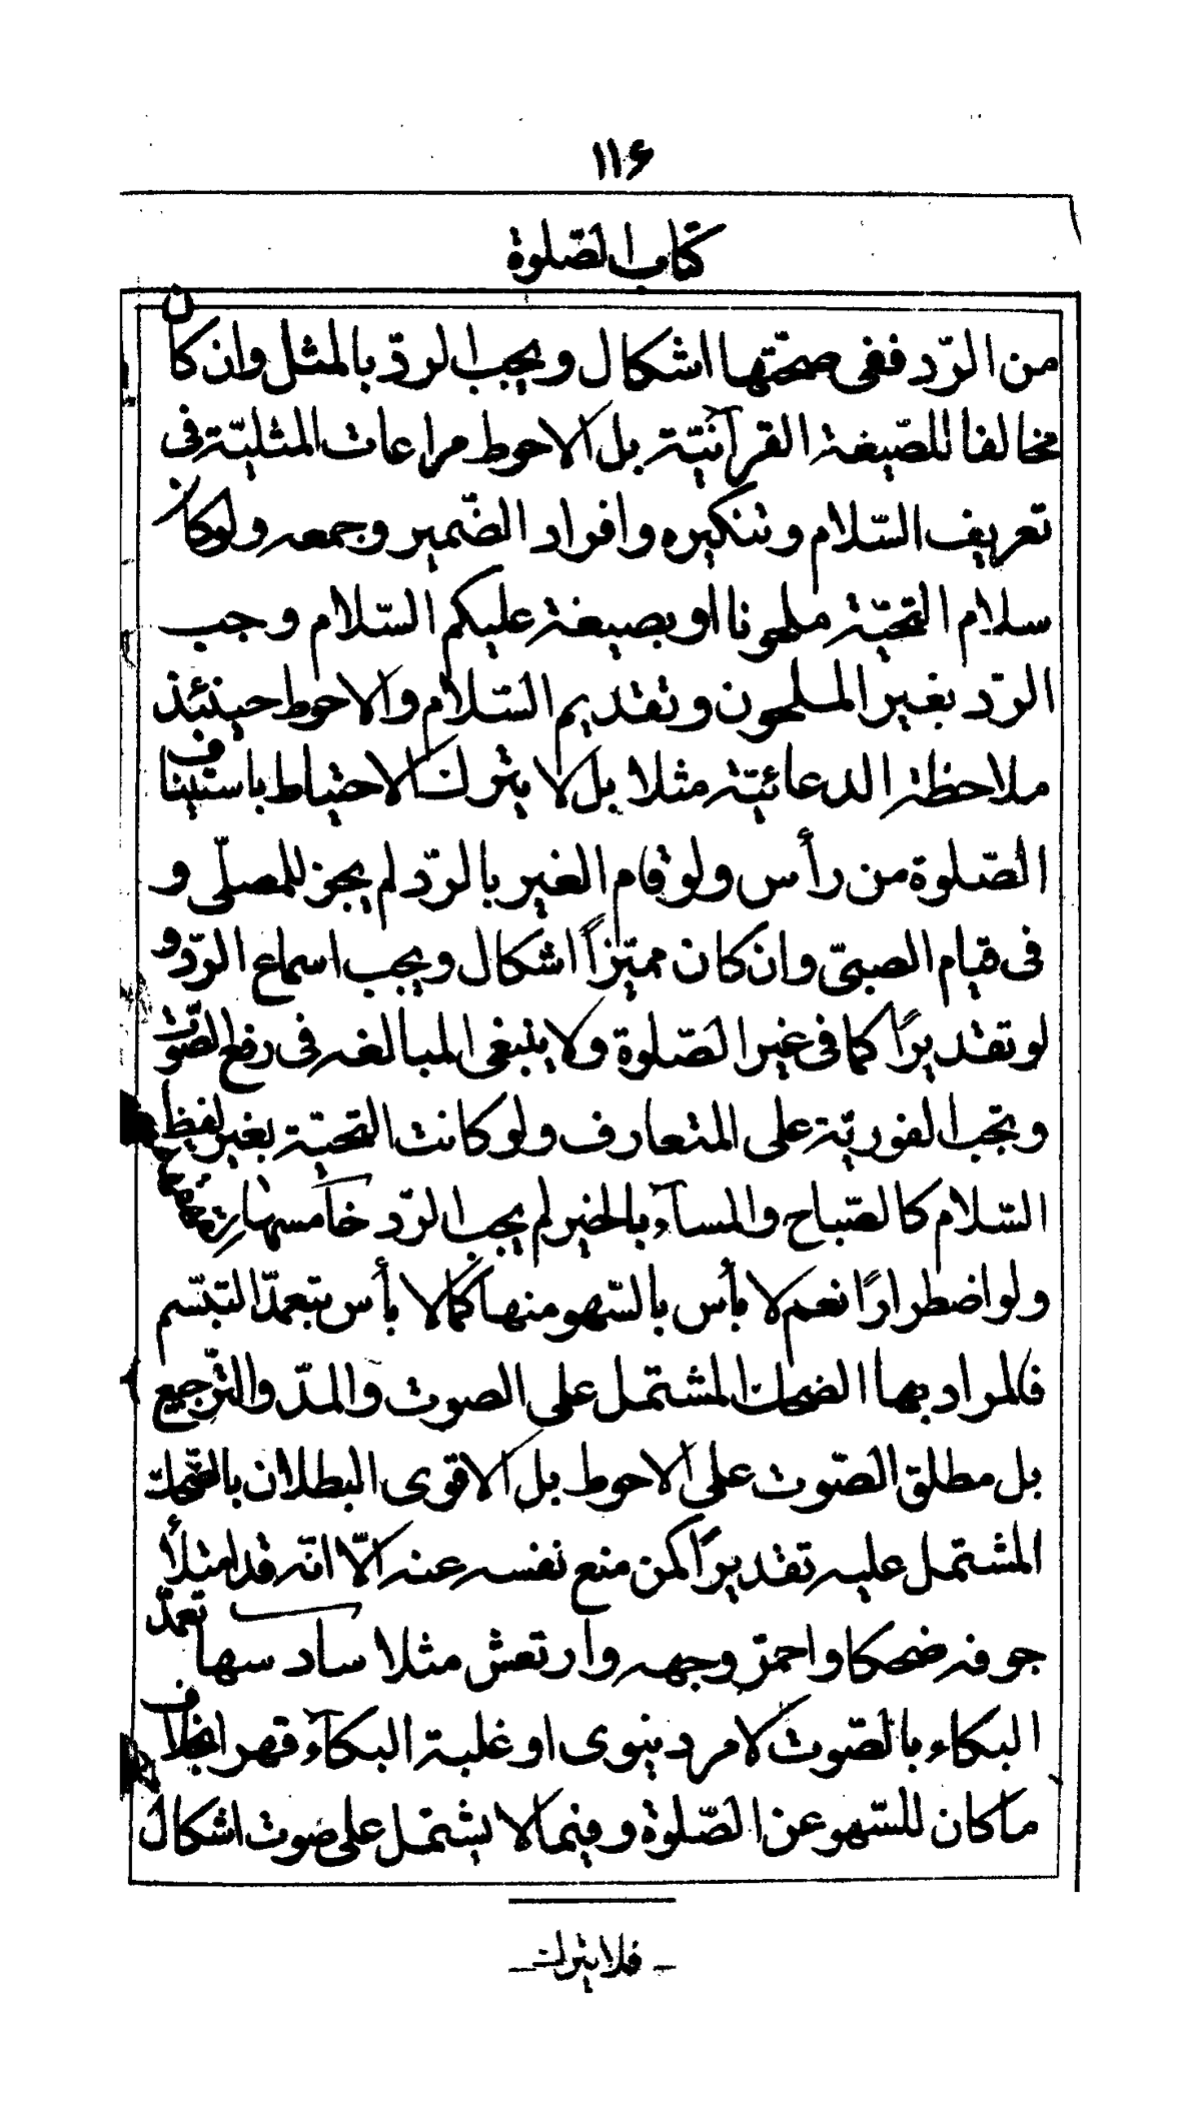 ۱۱۶
كتاب الصّلوة
من الرّد ففى صحّتها اشكال ويجب الردّ بالمثل وان كان
مخالفا للصّيغة القرآنيّة بل الاحوط مراعات المثليّة فى
تعريف السّلام وتنكيره وافراد الضّمير وجمعه ولوكان
سلام التحيّة ملحونا او بصيغة عليكم السّلام وجب
الرّد بغير الملحون وتقديم السّلام والاحوط حينئذ
ملاحظة الدعائيّة مثلا بل لا يترك الاحتياط باستيناف
الصّلوة من رأس ولو قام الغير بالرّد لم يجز للمصلّى و
فى قيام الصبىّ وان كان مميّزاً اشكال ويجب اسماع الرّد و
لو تقديرًا كما فى غير الصّلوة ولا ينبغى المبالغه فى رفع الصّوت
وتجب الفوريّة على المتعارف ولو كانت التحيّة بغير لفظ
السّلام كالصّباح والمسآء بالخير لم يجب الرّد خامسها
ولو اضطرارًا نعم لا بأس بالسّهو منها كما لا بأس بتعمدّ التبسّم
فالمراد بها الضحك المشتمل على الصوت والمدّ والترّجيع
بل مطلق الصّوت على الاحوط بل الاقوى البطلان بالضّحك
المشتمل عليه تقديرًا كمن منع نفسه عنه الاّ انّه قد امتلأ
جوفه ضحكا واحمرّ وجهه وارتعش مثلا سادسها تعمدّ
البكاء بالصّوت لامر دينوى او غلبة البكآء قهرا بخلاف
ما كان للسّهو عن الصّلوة وفيما لا يشتمل على صوت اشكال
فلا يترك